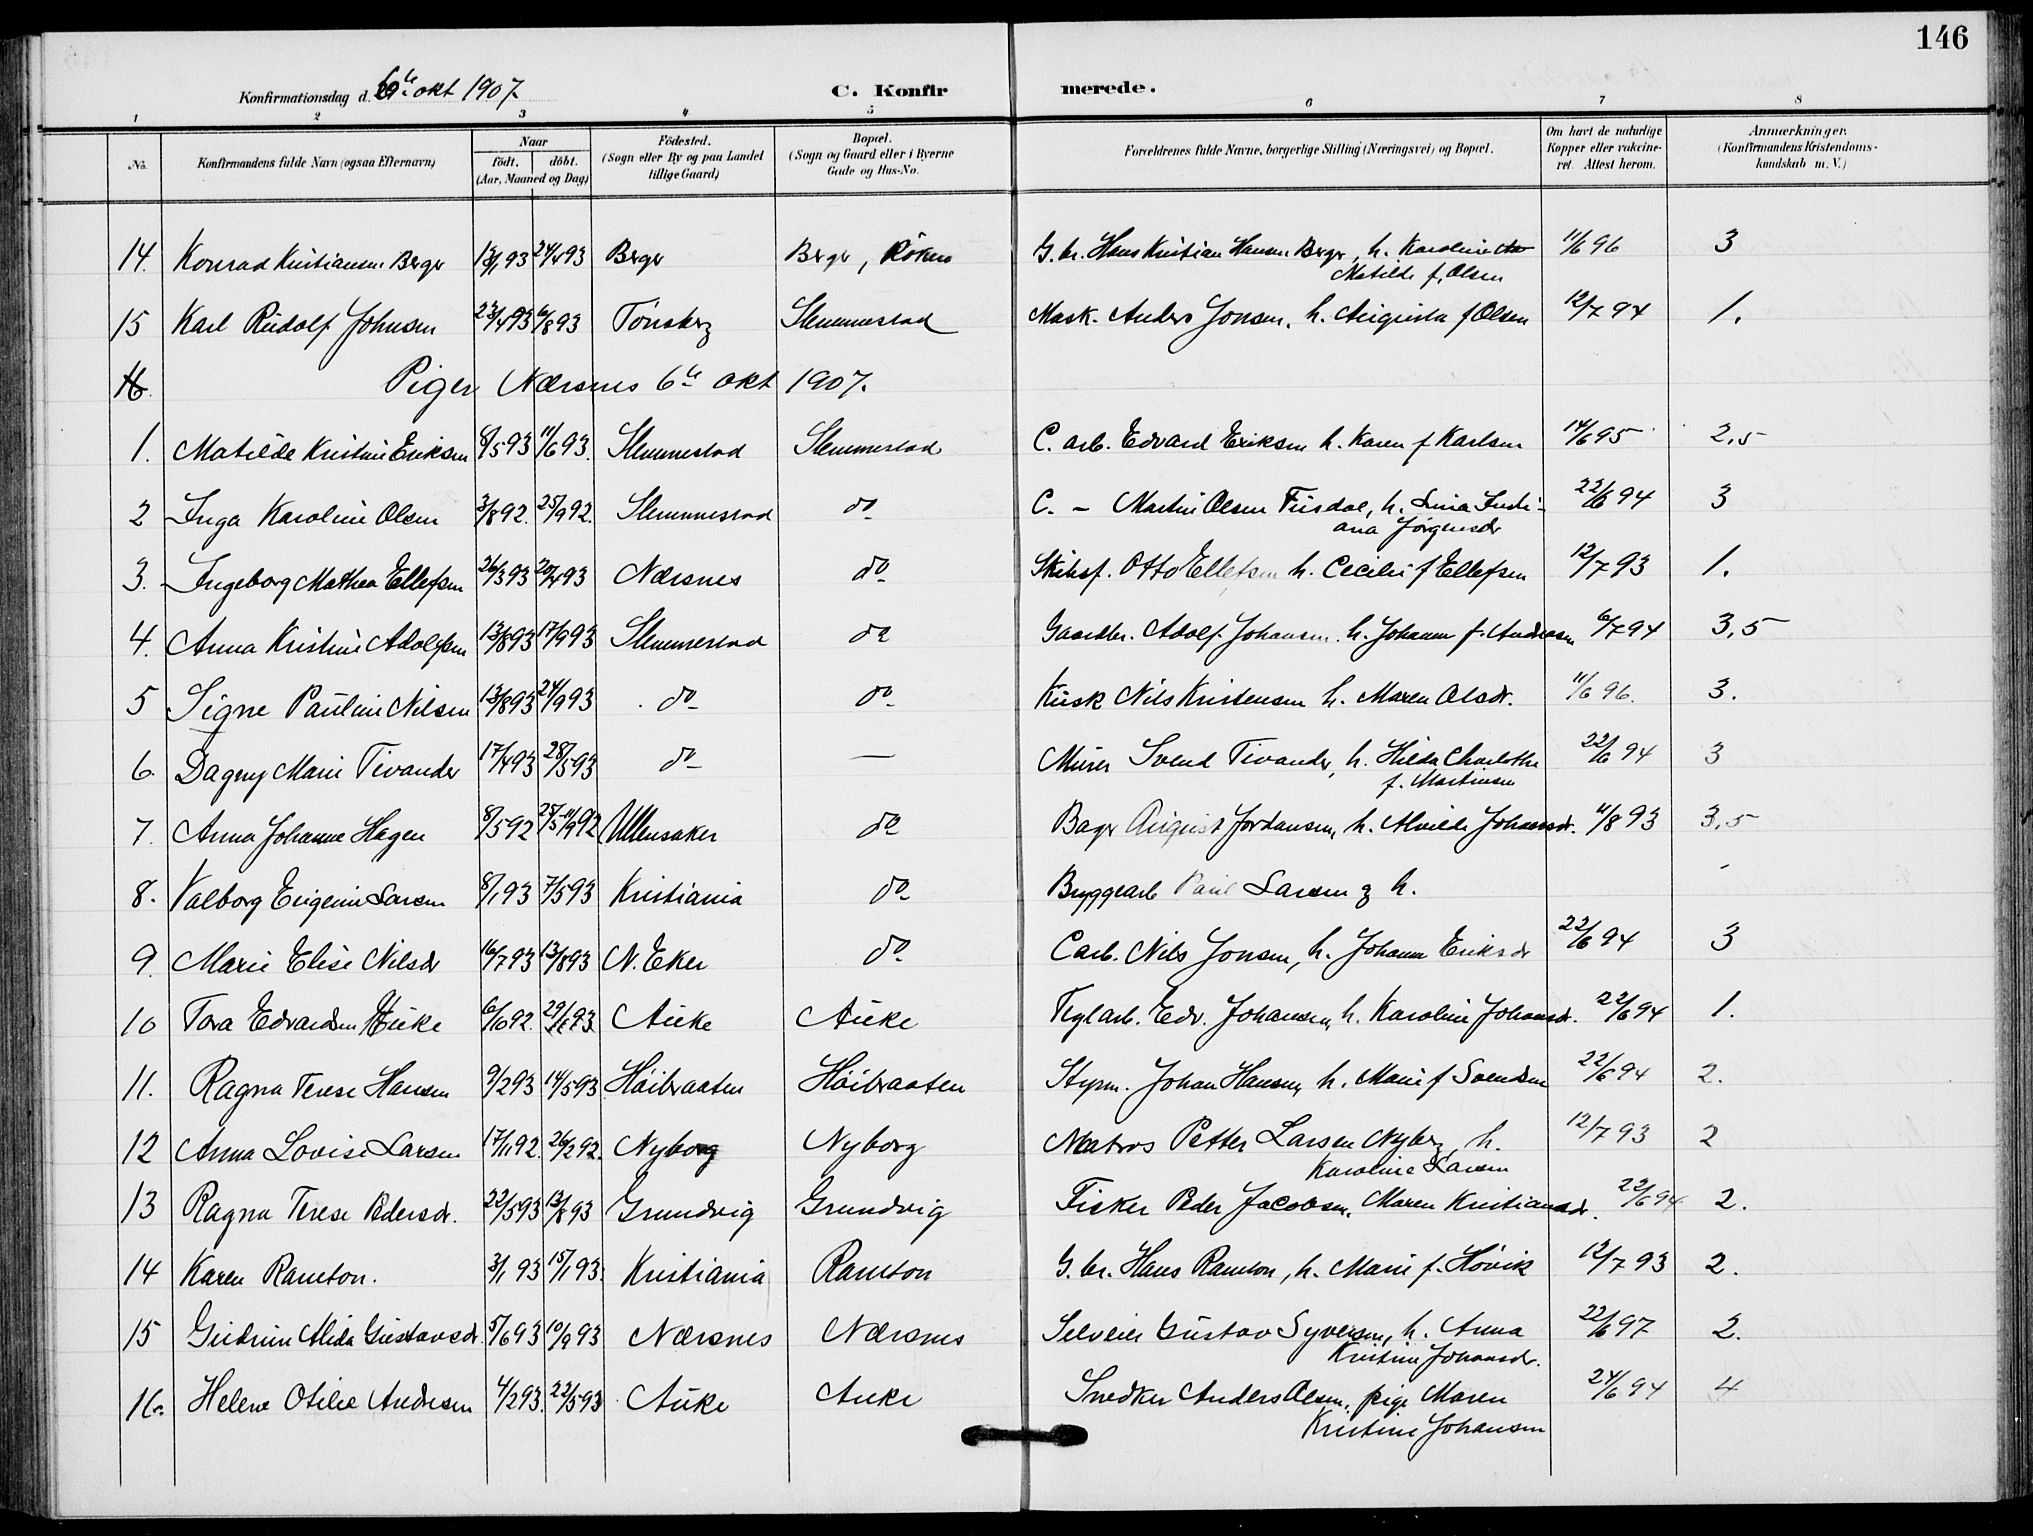 146
Konfirmationsdag d. 6te okt 1907.
C. Konfirmerede.
1 2 3 4 5 6 7 8
No. Konfirmandens fulde Navn (ogsaa Efternavn) Naar født. døbt. (Aar, Maaned og Dag) Fødested. (Sogn eller By og paa Landet tillige Gaard) Bopæl. (Sogn og Gaard eller i Byerne Gade og Hus-No. Forældrenes fulde Navne, borgerlige Stilling (Næringsvei) og Bopæl. Om havt de naturlige Kopper eller vakcineret. Attest herom. Anmærkninger. (Konfirmandens Kristendomskundskab m. V.)
14. Konrad Kristiansen Berger 13/1 93 24/4 93 Berger Berger, Röken G. br. Hans Kristian Hansen Berger, h. Karoline
Matilde f. Olsen 11/6 96 3
15 Karl Rudolf Johnsen 23/4 93 6/8 93 Tönsberg Slemmestad Mask. Anders Jonsen, h. Augusta f Olsen 12/7 94 1.
16. Piger Nærsnes 6te okt 1907.
1. Matilde Kristine Eriksen 8/5 93 11/6 93. Slemmestad Slemmestad C. arb. Edvard Eriksen h. Karen f Karlsen 14/6 95 2,5
2 Inga Karoline Olsen 3/8 92. 25/9 92. Slemmestad do C. - Martin Olsen h. Lina
Jörgensdr 22/6 94 3
3. Ingeborg Mathea Ellefsen 26/3 93 20/4 93 Nærsnes do Skibsf. Otto Ellefsen h. Cecilie f Ellefsen 12/7 93 1.
4. Anna Kristine Adolfsen 13/8 93 17/9 93 Slemmestad do Gaardbr. Adolf Johansen h. Johanne f. Andersen 6/7 94 3,5
5 Signe Pauline Nilsen 13/8 93 24/9 93 do do Kusk Nils Kristensen h. Maren Olsdr. 11/6 96. 3.
6. Dagny Marie Tivander 17/4 93 28/5 93 do — Murer Svend Tivander, h. Hilda Charlotte
f. Martinsen 22/6 94 3
7. Anna Johanne Hagen 8/5 92 Ullensaker do Bager August Jordansen, h. Alvilde Johansdr. 11/8 93 3,5
8. Valborg Eugenie Larsen 8/1 93 7/5 93 Kristiania do Bryggearb Paul Larsen g h. -
9. Marie Elise Nilsdr 16/7 93 13/8 93 N. Eker do C arb. Nils Jonsen, h. Johanne Eriksdr 22/6 94 3
10 Tora Edvardsen Auke 6/10 92. Auke Auke Teglarb. Edv. Johansen, h. Karoline Johansdr. 22/6 94 1.
11. Ragna Terese Hansen 9/2 93 14/5 93 Höibraaten Höibraaten Styrm. Johan Hansen, h. Marie f Svendsen 22/6 94 2.
12 Anna Lovise Larsen 17/1 92. 26/2 92. Nyborg Nyborg Matros Petter Larsen Nyborg, h.
Karoline Larsen 12/7 93 2
13 Ragna Terese Pedersdr. 22/5 93 13/8 93 Grundvig Grundvig Fisker Peder Jacobsen, Maren Kristiansdr. 22/6 94 2.
14 Karen Ramton. 3/1 93 15/1 93. Kristiania Ramton G. br. Hans Ramton, h. Marie f. Hövik 12/7 93 2.
15 Gudrun Alida Gustavsdr. 5/6 93 10/9 93 Nærsnes Nærsnes Selveier Gustav Syversen, h. Anna
Kristine Johansdr. 22/6 97 2.
16. Helene Otilie Andresen 4/2 93. 22/5 93 Auke Auke Snedker Anders Olsen, pige Maren
Kristine Johansen 24/6 94 4